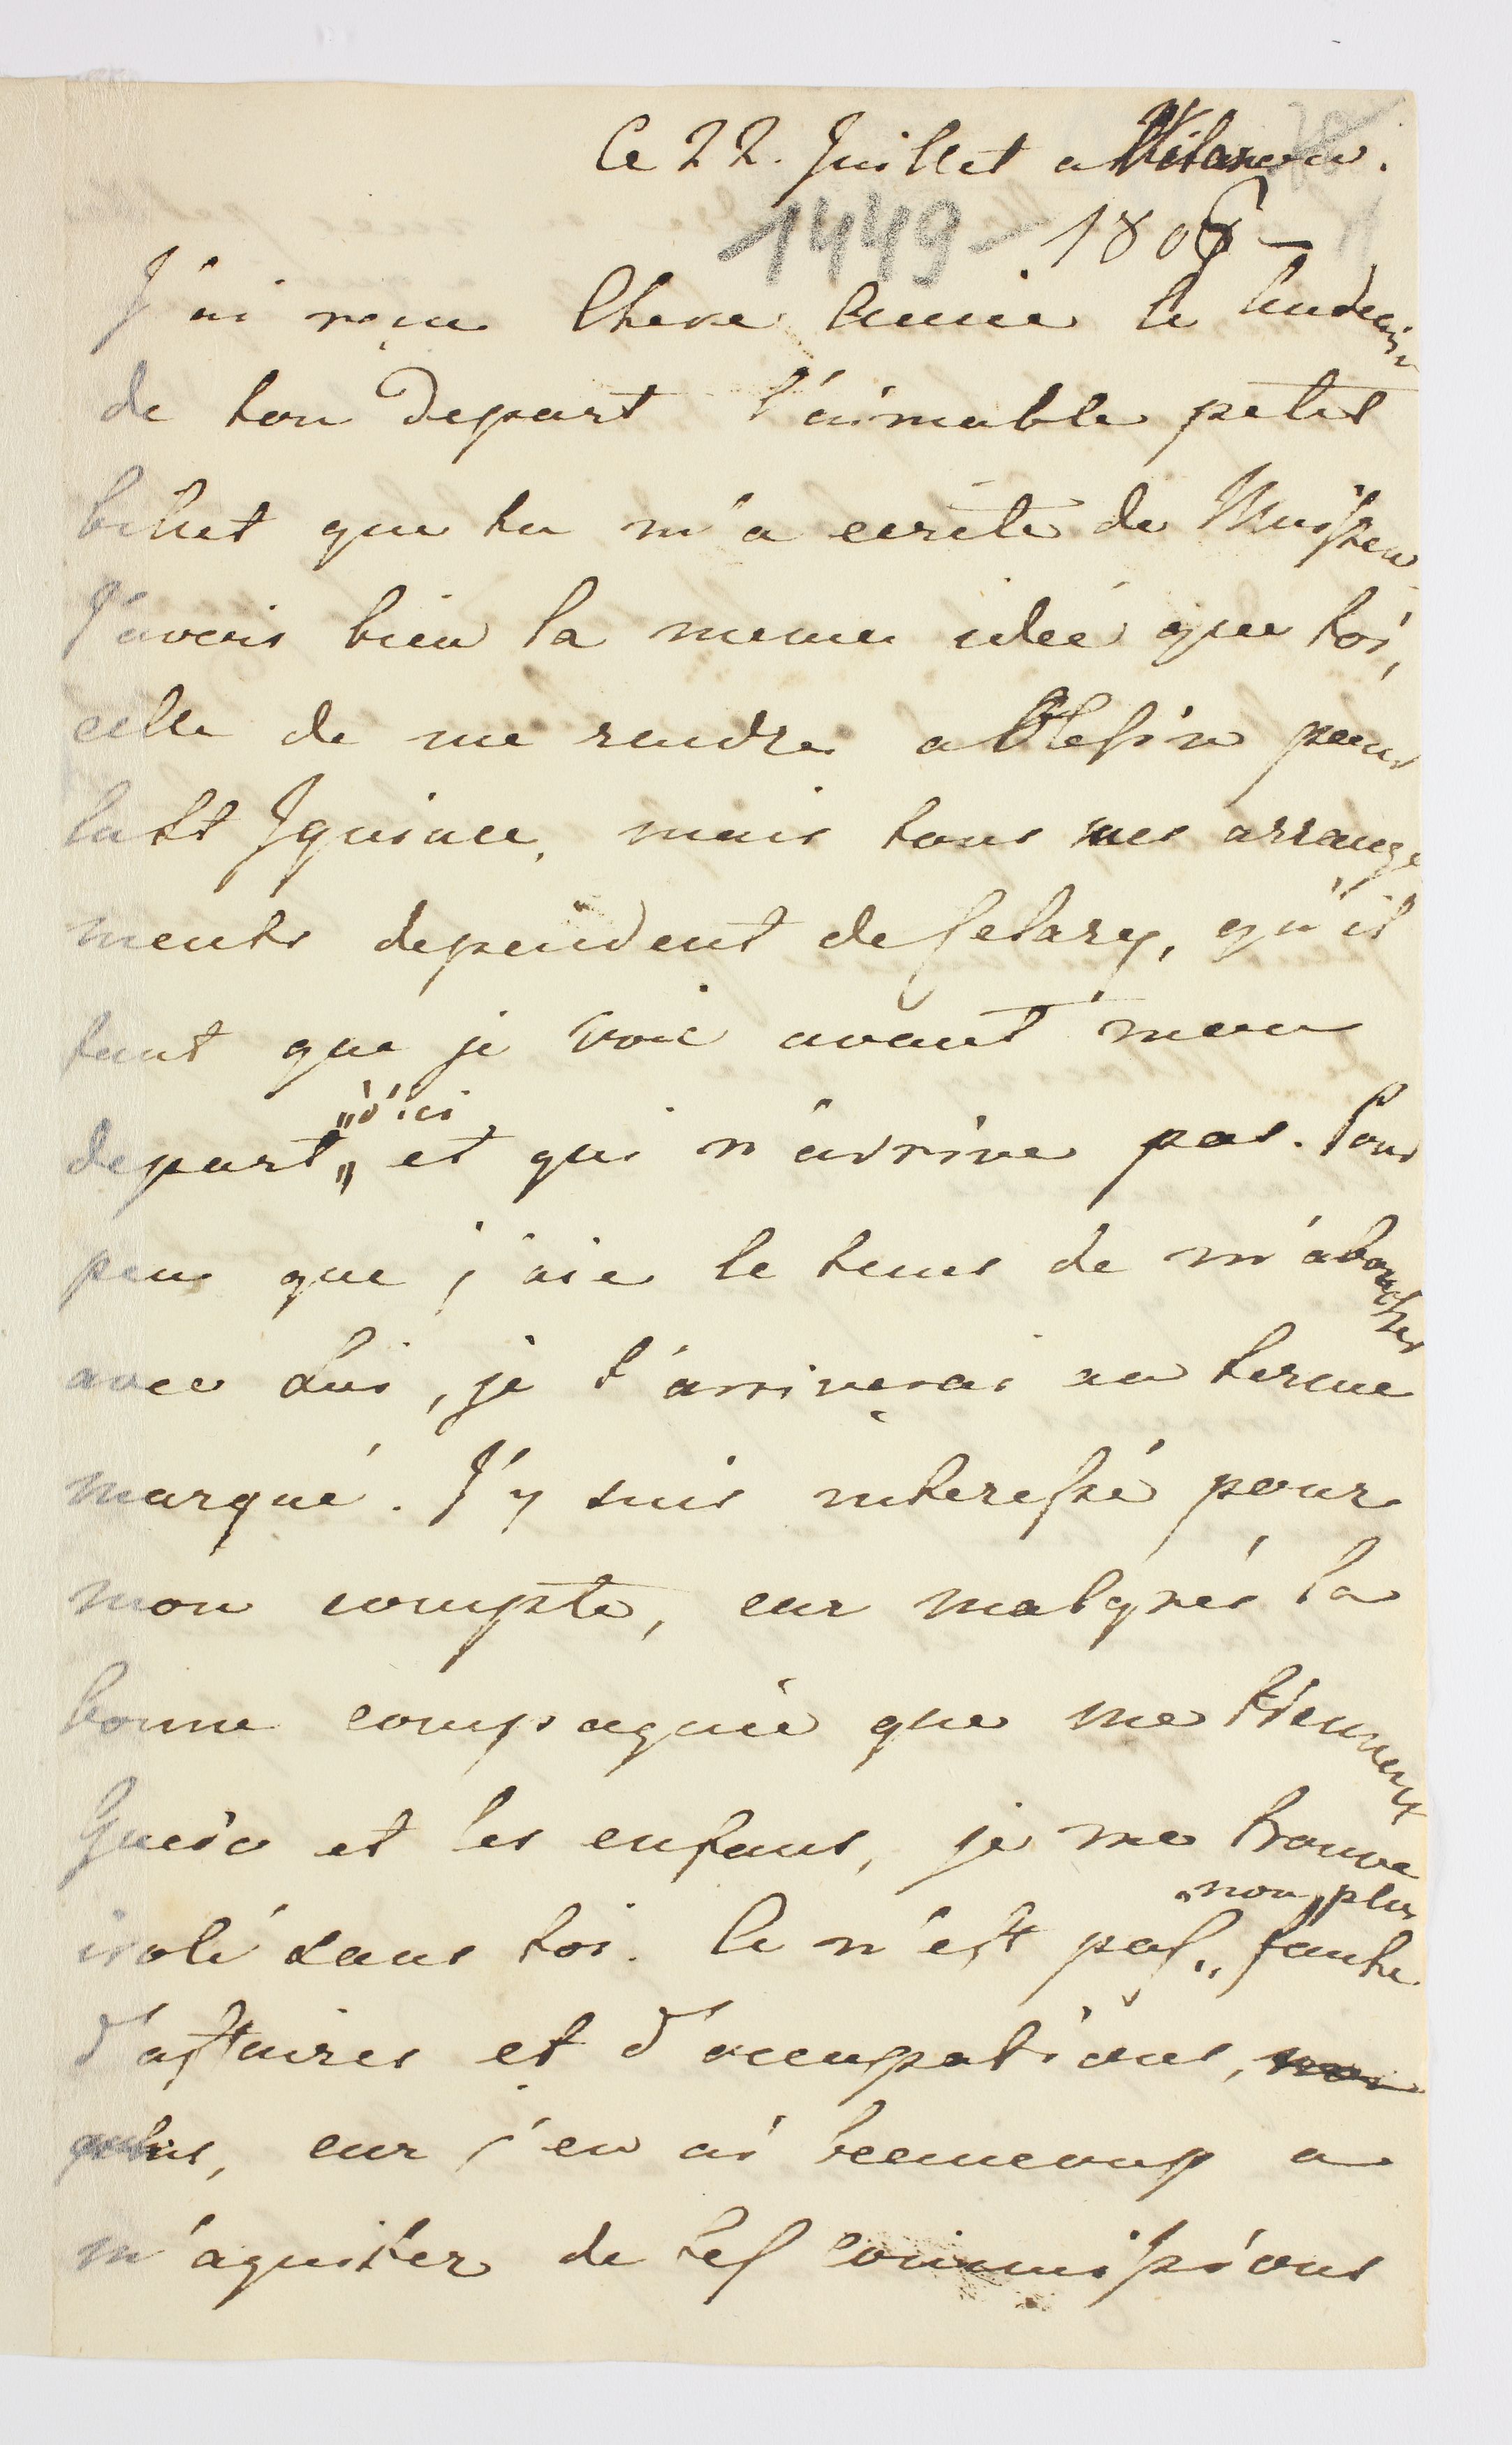 Ce 22. Juillet a Wilanow.
1449 - 1806 -
J'ai reçue Chere amie le lendemain
de ton Depart l'aimable petit
billet que tu m'a ecrite de
J'avais bien la meme idée que toi,
celle de me rendre a Olesin pour
la St Ignace, mais tous mes arrange
ments dependent de Selary, qu'il
faut que je voie avant mon
depart „d'ici„ et qui n'arrive pas. Pour
peu que j'aie le tems de m'aboucher
avec Lui, je t'arriverai au terme
marqué. J'y suis interessé pour
mon compte, car malgrés la
bonne compagnie que me tiennent
et les enfans, je me trouve
isolé sans toi. Ce n'est pas „non plus„ faute
d'affaires et d'occupations, non
plus, car j'en ai beaucoup a
m'aquiter de tes commissions